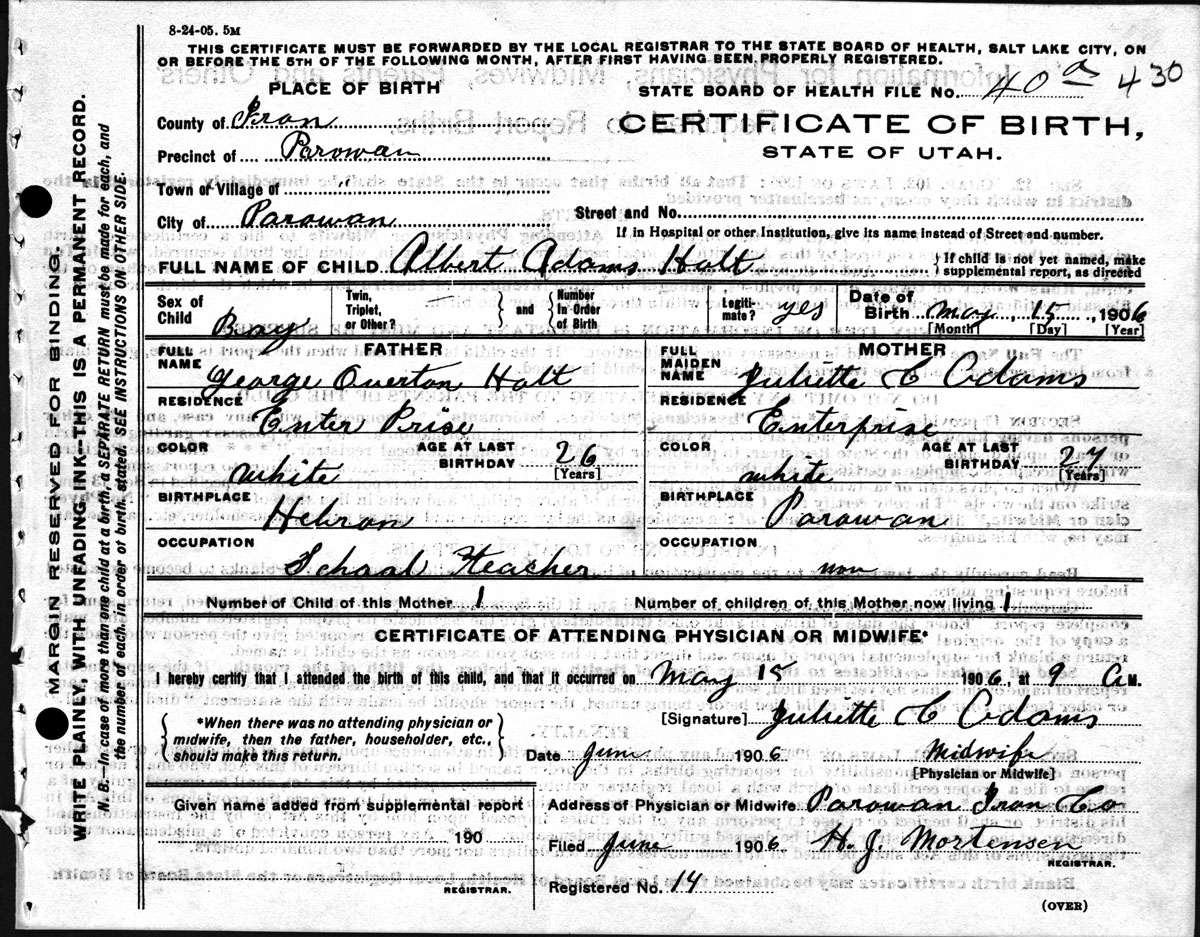 8-24-05. 5M
THIS CERTIFICATE MUST BE FORWARDED BY THE LOCAL REGISTRAR TO THE STATE BOARD OF HEALTH, SALT LAKE CITY, ON
OR BEFORE THE 5TH OF THE FOLLOWING MONTH, AFTER FIRST HAVING BEEN PROPERLY REGISTERED.
PLACE OF BIRTH
STATE BOARD OF HEALTH FILE NO. 40 a 430
County of Iron
CERTIFICATE OF BIRTH,
STATE OF UTAH.
Precinct of Parowan
Town or Village of "
City of Parowan
Street and No.
If in Hospital or other Institution, give its name instead of Street and number.
FULL NAME OF CHILD Albert Adams Holt
} If child is not yet named, make supplemental report, as directed
Sex of Child Boy
Twin, Triplet, or Other? } and { Number In Order of Birth
Legitimate? yes
Date of Birth May 15, 1906
[Month] [Day] [Year]
FATHER
FULL NAME George Overton Holt
RESIDENCE Enter Prise
COLOR white
AGE AT LAST BIRTHDAY 26 [Years]
BIRTHPLACE Hebron
OCCUPATION School Teacher
MOTHER
FULL MAIDEN NAME Juliette C Adams
RESIDENCE Enterprise
COLOR white
AGE AT LAST BIRTHDAY 27 [Years]
BIRTHPLACE Parowan
OCCUPATION non
Number of Child of this Mother 1
Number of children of this Mother now living 1
CERTIFICATE OF ATTENDING PHYSICIAN OR MIDWIFE*
I hereby certify that I attended the birth of this child, and that it occurred on May 15 1906, at 9 A M.
{ *When there was no attending physician or midwife, then the father, householder, etc., should make this return. }
[Signature] Juliette C Adams
Date June 1906
Midwife
[Physician or Midwife]
Given name added from supplemental report
190
REGISTRAR.
Address of Physician or Midwife Parowan Iron Co
Filed June 1906 H. J. Mortensen
REGISTRAR.
Registered No. 14
(OVER)
MARGIN RESERVED FOR BINDING.
WRITE PLAINLY, WITH UNFADING INK—THIS IS A PERMANENT RECORD.
N. B.—In case of more than one child at a birth, a SEPARATE RETURN must be made for each, and
the number of each, in order of birth, stated. SEE INSTRUCTIONS ON OTHER SIDE.